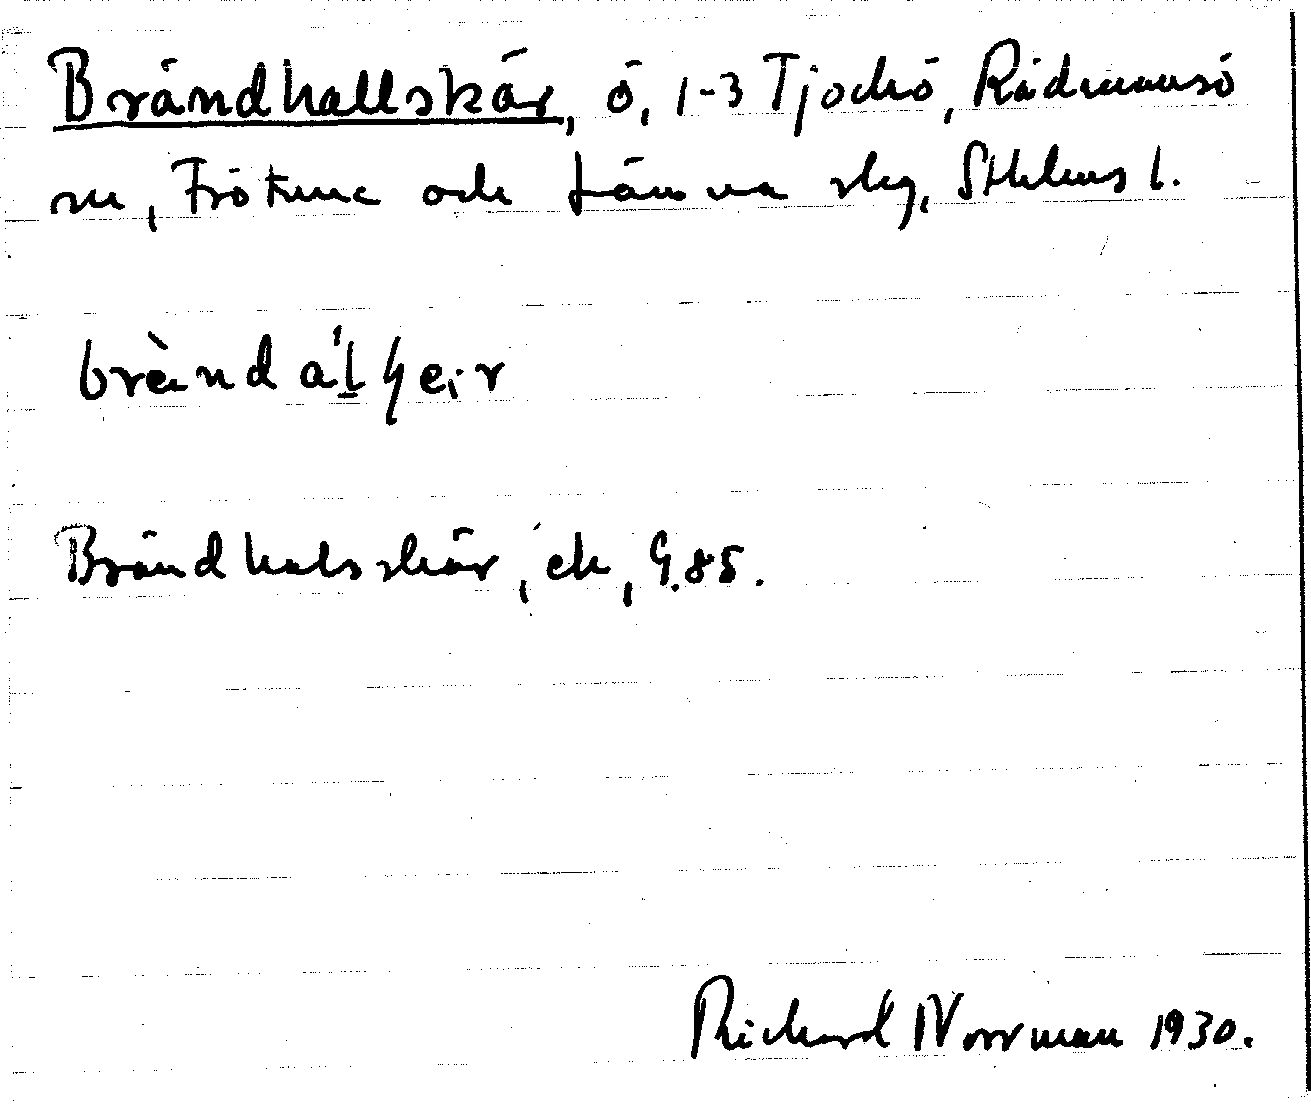 Brändhallskär, ö, 1-3 Tjockö, Rådmansö
sn, Frötuna och Länna skg, Sthlms l.
brä̀nd ál̠ɧer
Brändhalsskär, ek, G.85.
Richard Norrman 1930.